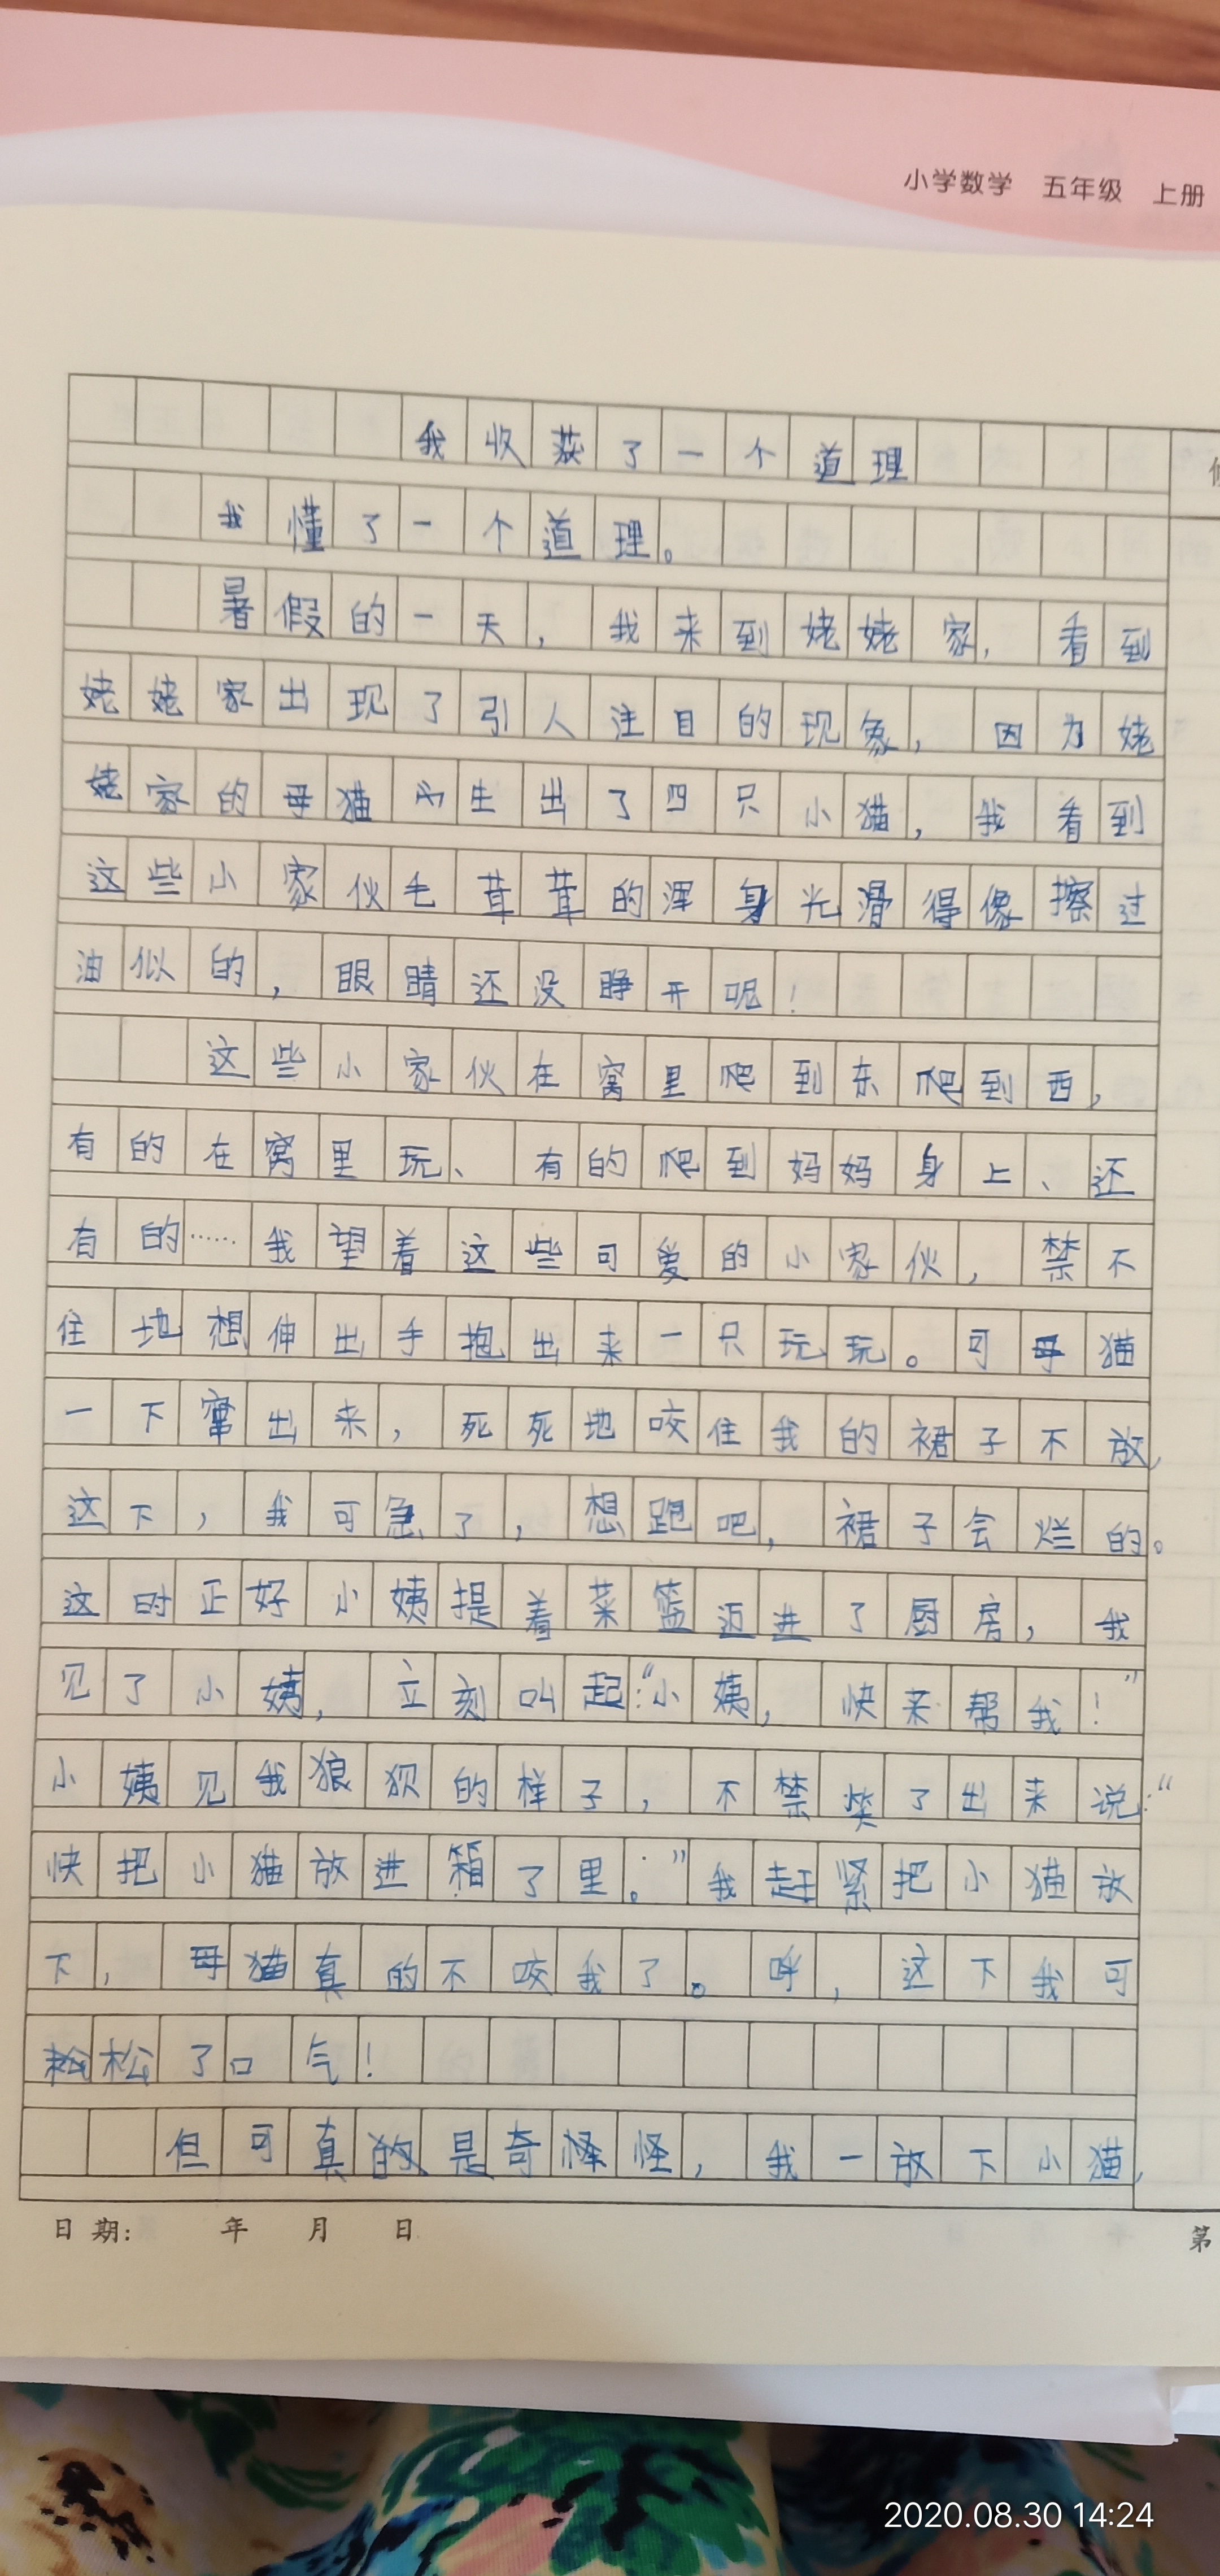 小学数学 五年级 上册
我收获了一个道理
我懂了一个道理。
暑假的一天，我来到姥姥家，看到
姥姥家出现了引人注目的现象，因为姥
姥家的母猫生出了四只小猫，我看到
这些小家伙毛茸茸的浑身光滑得像擦过
油似的，眼睛还没睁开呢！
这些小家伙在窝里爬到东爬到西，
有的在窝里玩、有的爬到妈妈身上、还
有的……我望着这些可爱的小家伙，禁不
住地想伸出手抱出来一只玩玩。可母猫
一下窜出来，死死地咬住我的裙子不放，
这下，我可急了，想跑吧，裙子会烂的。
这时正好小姨提着菜篮迈进了厨房，我
见了小姨，立刻叫起：“小姨，快来帮我！”
小姨见我狼狈的样子，不禁笑了出来说：“
快把小猫放进箱了里。”我赶紧把小猫放
下，母猫真的不咬我了。呼，这下我可
松松了口气！
但可真的是奇怪怪，我一放下小猫，
日期： 年 月 日
第
2020.08.30 14:24